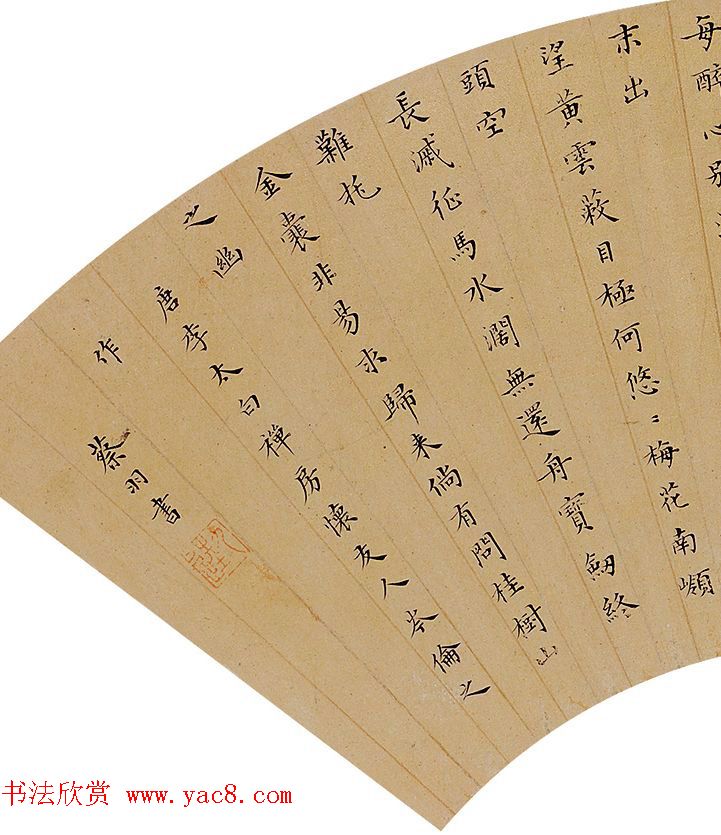 每醉心別
末出
望黄雲蔽目極何悠〻梅花南嶺
頭空
長滅征馬水濶無還舟寶劒終
難托
金囊非易求歸来倘有問桂樹山
之幽
唐李太白禪房懷友人岑倫之
作
蔡羽書
书法欣赏 www.yac8.com